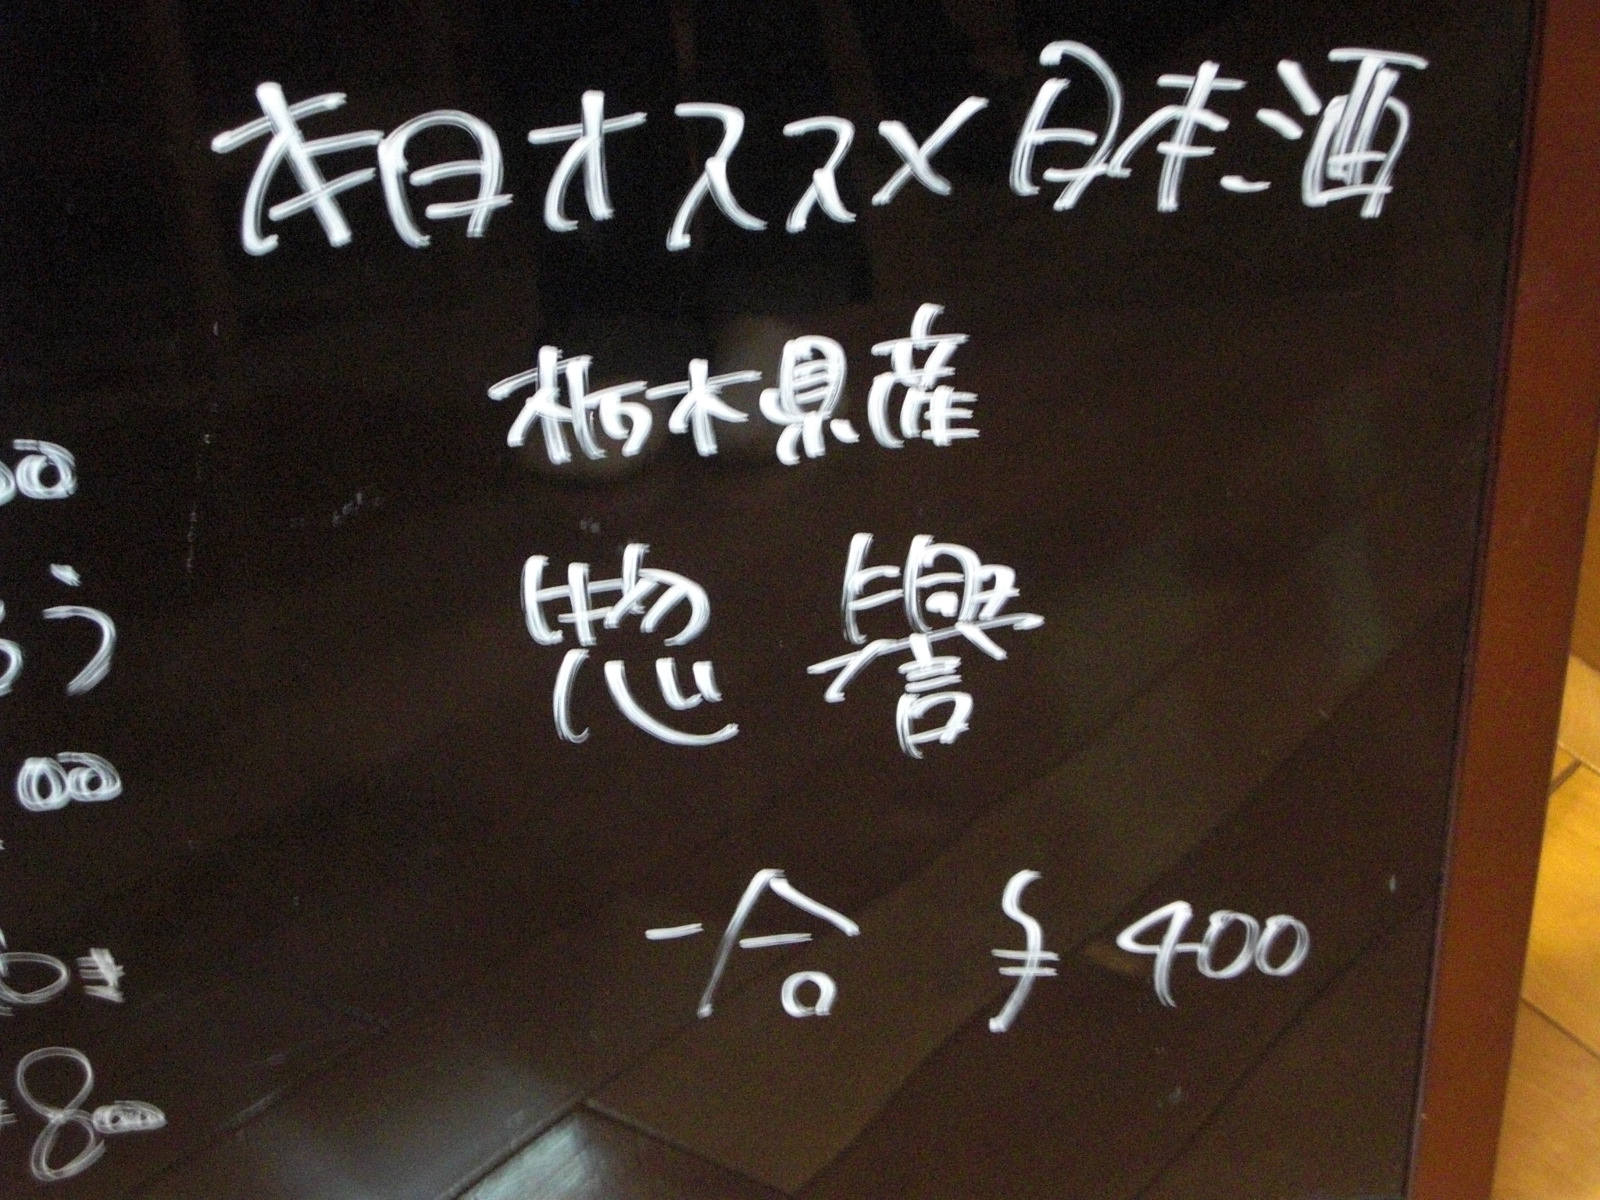 本日オススメ日本酒
栃木県産
惣譽
一合 ¥400